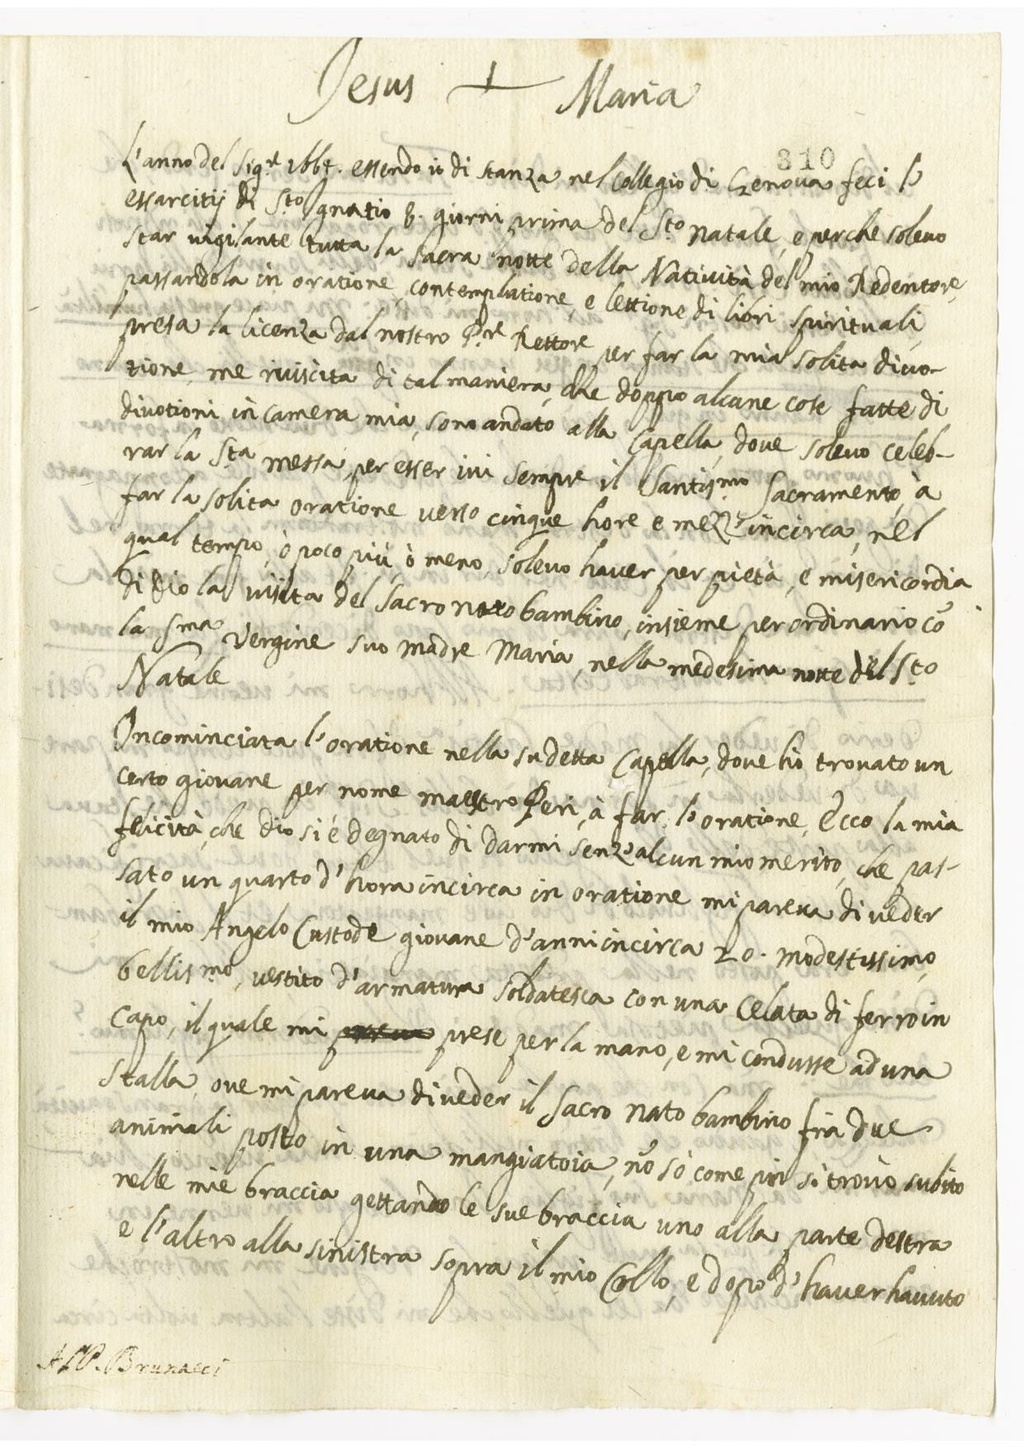 Jesus + Maria
310
L'anno del Sig.r 1664. essendo io di stanza nel Collegio di Genova feci l'
essarcitij di S.to Ignatio 8. giorni prima del S.to Natale, e perche solevo
star vigilante tutta la sacra notte della Natività del mio Redentore,
passandola in oratione, contemplatione, e lettione di libri spirituali,
presa la licenza dal nostro P.re Rettore per far la mia solita divo-
tione, me riuscita di tal maniera, che doppo alcune cose fatte di
divotioni in camera mia, sono andato alla Capella, dove solevo celeb-
rar la S.ta messa, per esser ivi sempre il Santis.mo Sacramento, à
far la solita oratione verso cinque hore e mezz' incirca, nel
qual tempo, ò poco più ò meno, solevo haver per pietà, e misericordia
di Dio la visita del Sacro nato bambino, insieme per ordinario cō
la Sma Vergine suo madre Maria, nella medesima notte del S.to
Natale
Incominciata l'oratione nella sudetta Capella, dove hò trovato un
certo giovane per nome maestro Peri, à far l'oratione, Ecco la mia
felicità, che Dio si è degnato di darmi senz'alcun mio merito, che pas-
sato un quarto d'hora incirca in oratione mi pareva di veder
il mio Angelo Custode giovane d'anni incirca 20. modestissimo,
bellismo, vestito d'armatura soldatesca con una celata di ferro in
capo, il quale mi prese per la mano, e mi condusse ad una
stalla, ove mi pareva di veder il Sacro nato bambino frà due
animali posto in una mangiatoia, nō sò come poi si trovò subito
nelle mie braccia gettando le sue braccia uno alla parte destra
e l'altro alla sinistra sopra il mio Collo, e dopo d'haver havuto
Al P. Brunacci